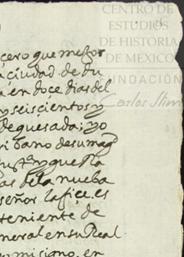 CENTRO DE
ESTUDIOS
DE HISTORIA
DE MEXICO
FUNDACIÓN
Carlos Slim
cero que me
la ciudad de
en doce dias del
y seiscientos y
de quesada; yo
de su mag
de la nueba
señor la fice. es
teniente de
neral en su Real
mi signo. en